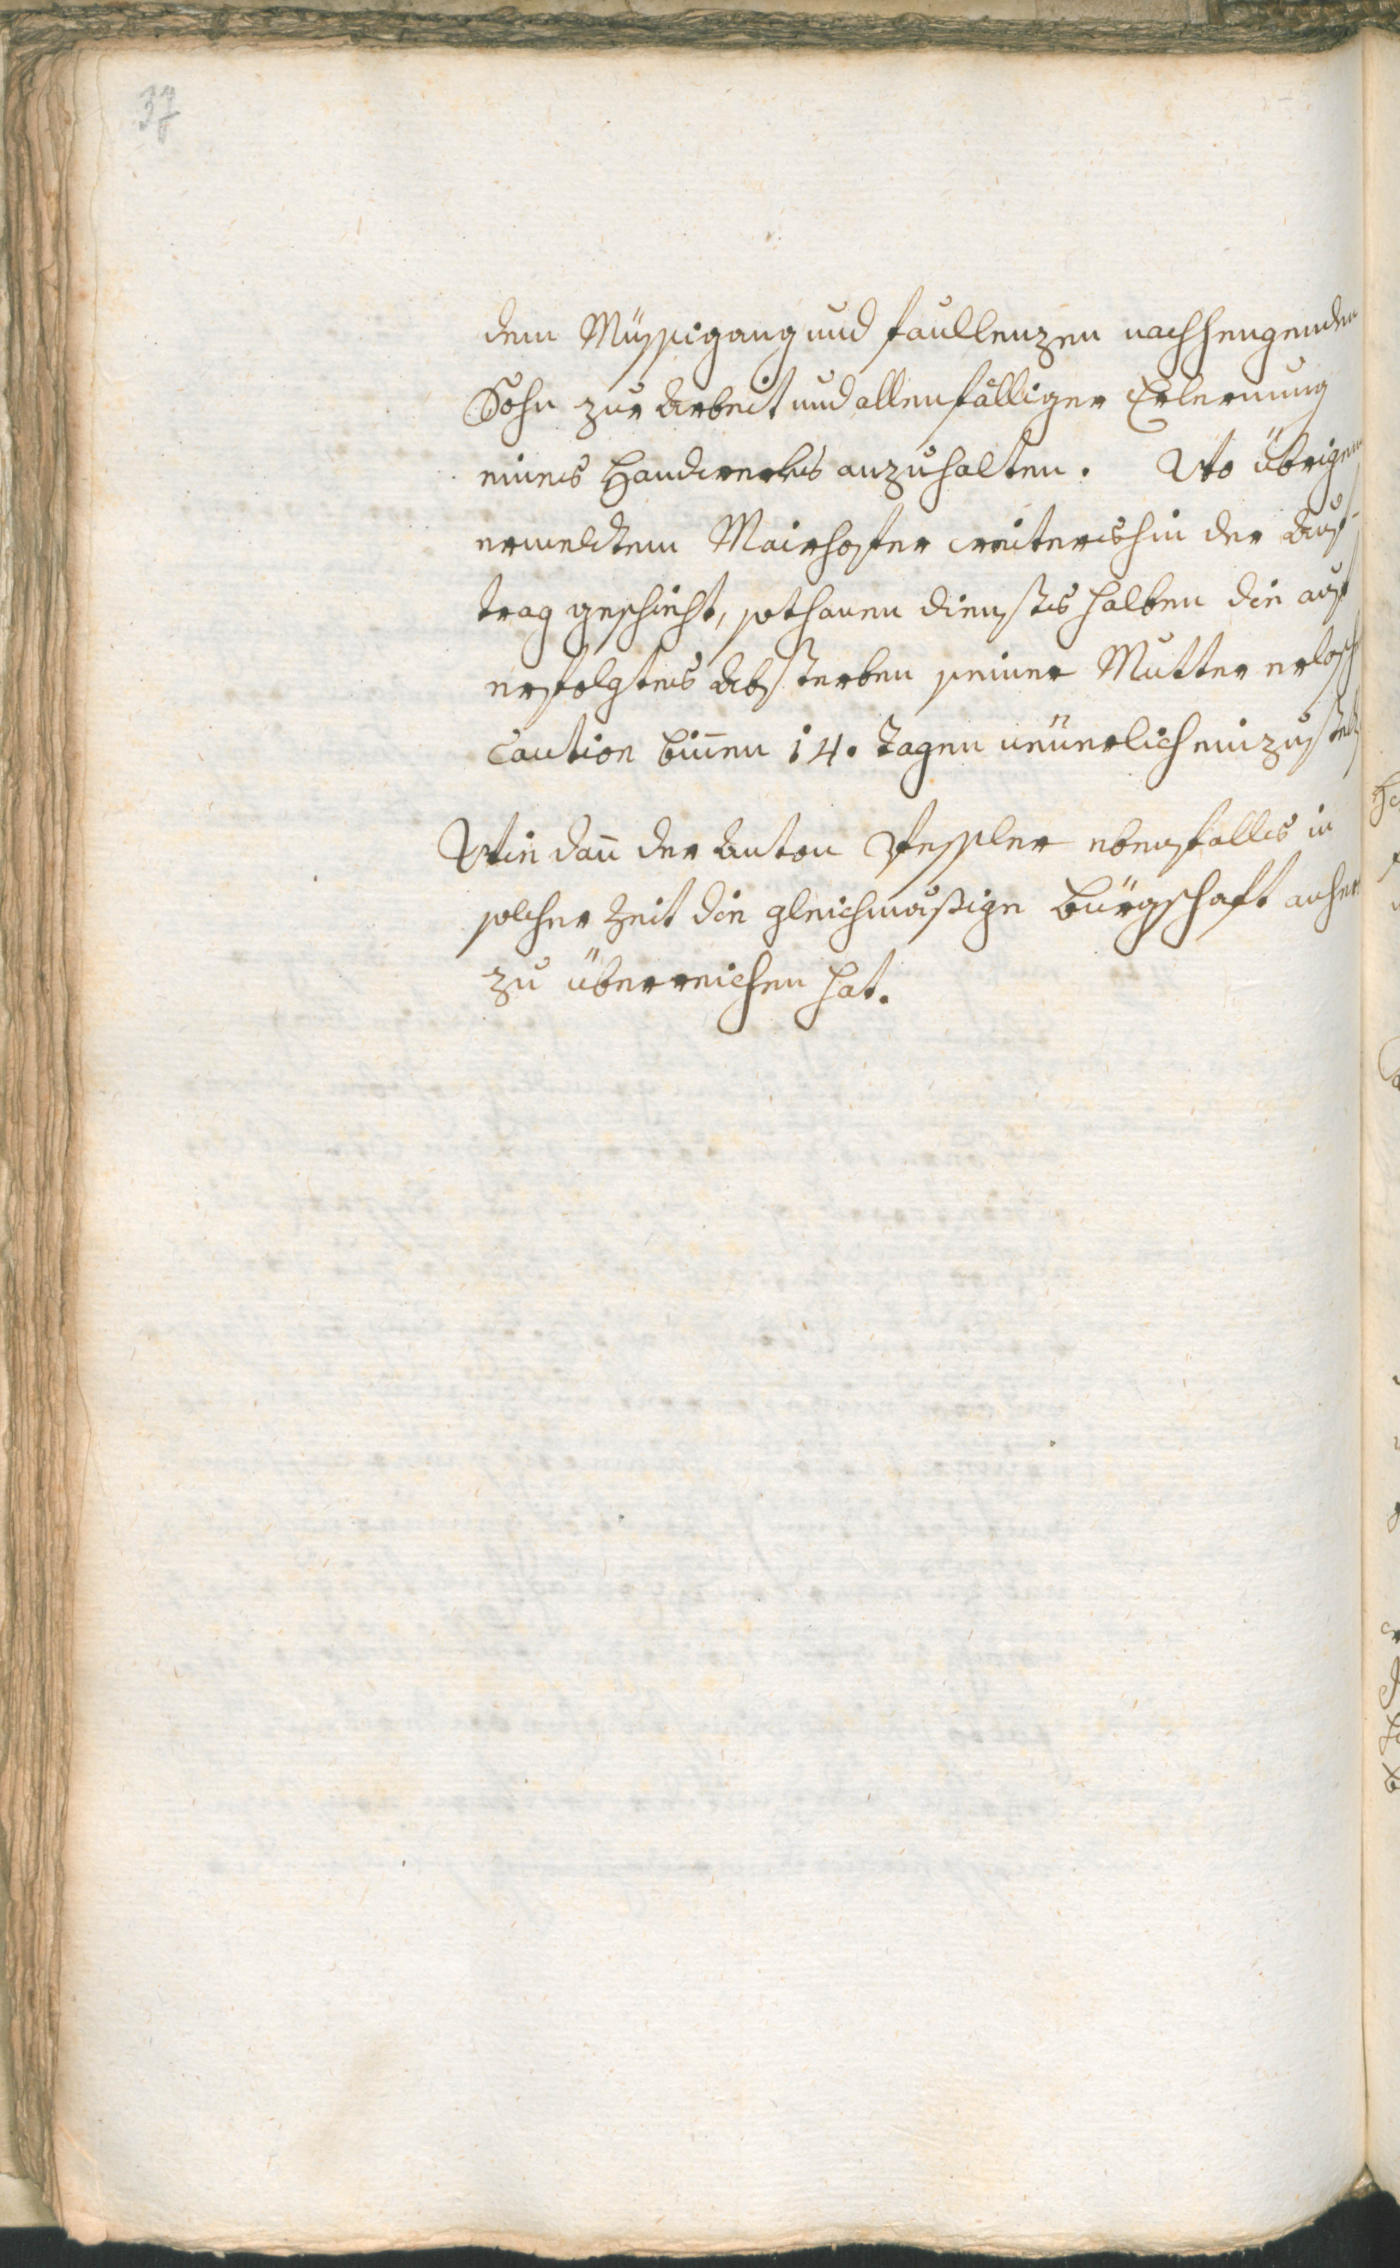 37
dem Müssigang und faullenzen nachhengenden
Sohn zur Arbeit und allenfälliger Erlernung
eines Handwerks anzuhalten. Wo übrigen
ermeldtem Mairhofer weitershin der Auf-
trag geschieht, sothanen dienstes halben die auf
erfolgtes Absterben seiner Mutter erlosch
Caution biñen 14. Tagen neüerlich einzustell
Wie dañ der Anton ebenfalls in
solcher Zeit die gleichmäßige Bürgschaft anher
zu überreichen hat.